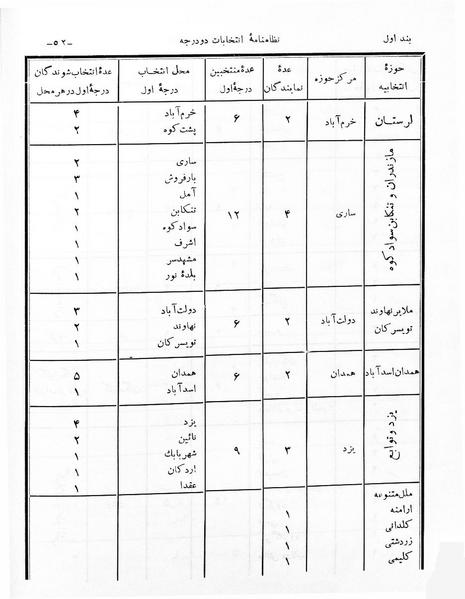 بند اول نظامنامهٔ انتخابات دو درجه -۵۲-
حوزهٔ انتخابیه مرکز حوزه عدهٔ نمایندگان عدهٔ منتخبین درجهٔ اول محل انتخاب درجهٔ اول عدهٔ انتخاب شوندگان درجهٔ اول در هر محل
لرستان خرم آباد ۲ ۶ خرم آباد ۴
پشت کوه ۲
مازندران و تنکابن سواد کوه ساری ۴ ۱۲ ساری ۲
بارفروش ۳
آمل ۱
تنکابن ۲
سواد کوه ۱
اشرف ۱
مشهدسر ۱
بلدهٔ نور ۱
ملایر نهاوند تویسرکان دولت آباد ۲ ۶ دولت آباد ۳
نهاوند ۲
تویسرکان ۱
همدان اسدآباد همدان ۲ ۶ همدان ۵
اسدآباد ۱
یزد و توابع یزد ۳ ۹ یزد ۴
نائین ۲
شهربابک ۱
اردکان ۱
عقدا ۱
ملل متنوعه
ارامنه ۱
کلدانی ۱
زردشتی ۱
کلیمی ۱